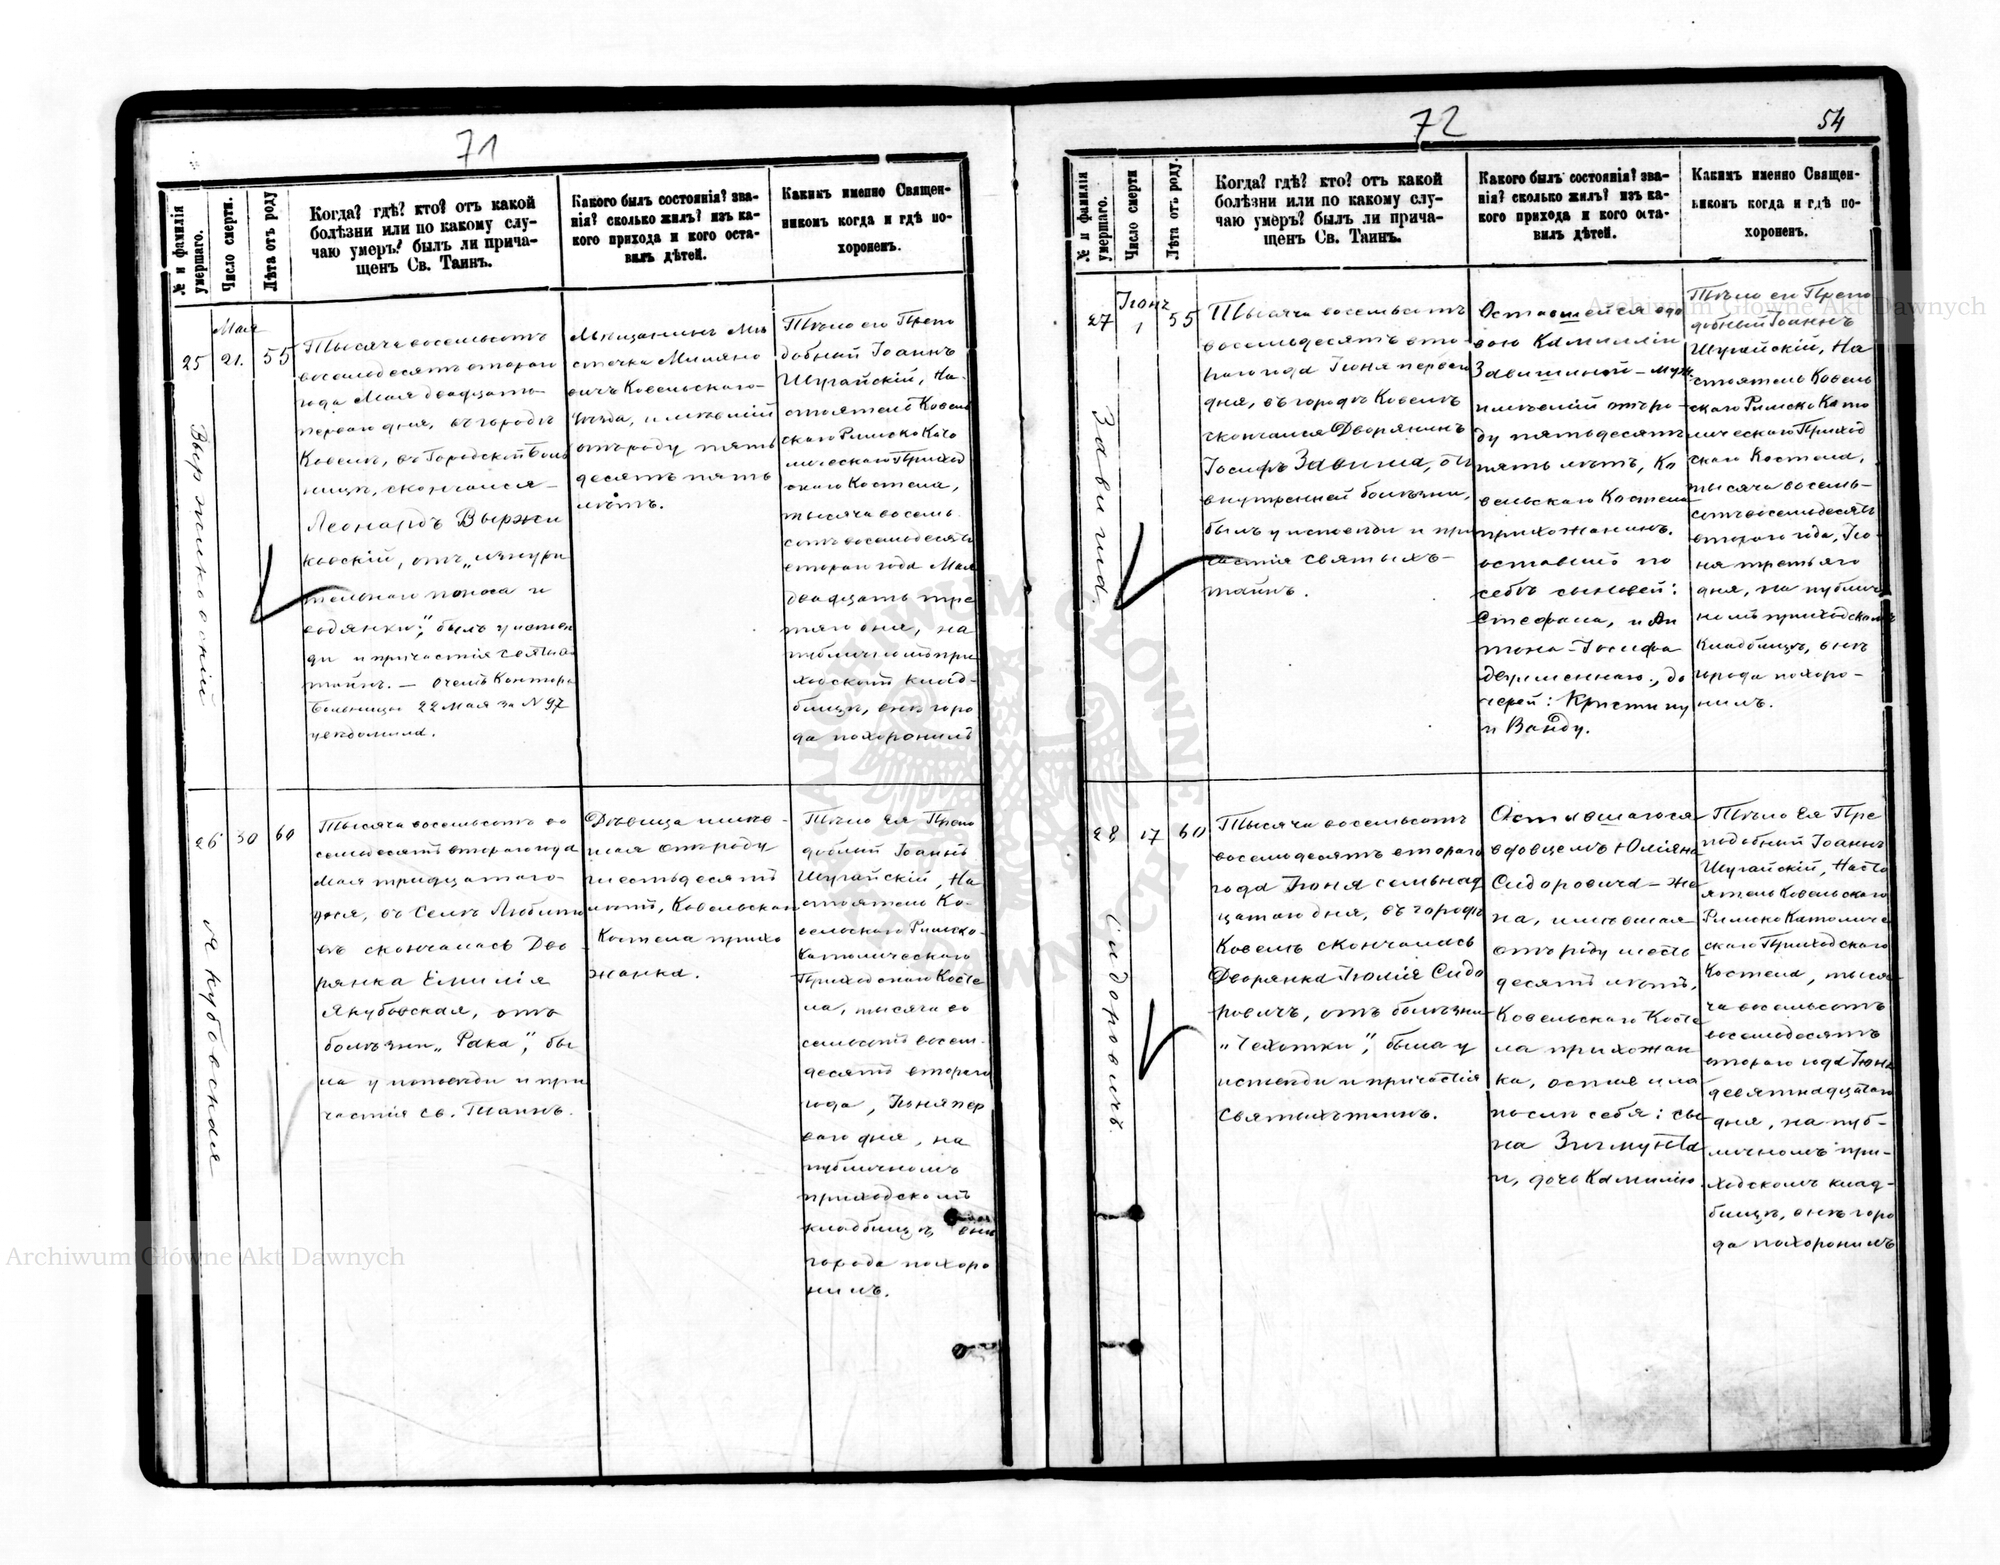 71
№ и фамилія умершаго.
Число смерти.
Лѣта отъ роду
Когда? гдѣ? кто? отъ какой
болѣзни или по какому слу-
чаю умеръ? былъ ли прича-
щенъ Св. Таинъ.
Какого былъ состоянія? зва-
нія? сколько жилъ? изъ ка-
кого прихода и кого оста-
вилъ дѣтей.
Какимъ именно Священ-
никомъ когда и гдѣ по-
хороненъ.
25
Выржиковскій
Мая
21.
55
Тысяча восемьсотъ
восемьдесятъ втораго
года Мая двадцать
перваго дня, въ городѣ
Ковелѣ, въ Городской Боль
ницѣ, скончался
Леонардъ Выржи
ковскій, отъ „изнури
тельнаго поноса и
водянки“, былъ у испове
ди и причастія святыхъ
тайнъ. — О чемъ Контора
Больницы 22 Мая за № 97
уведомила.
Мѣщанинъ Мѣ
стечка Миляно
вичъ Ковельскаго
Уѣзда, имѣвшій
отъ роду пять
десятъ пять
лѣтъ.
Тѣло его Препо
добный Іоаннъ
Шугайскій, На-
стоятель Ковель
скаго Римско Като
лическаго Приход
скаго Костела,
тысяча восемь
сотъ восемьдесятъ
втораго года Мая
двадцать тре
тяго дня, на
публичномъ при
ходскомъ клад-
бищѣ, внѣ горо
да похоронилъ
26
Якубовская
30
60
Тысяча восемьсотъ во
семьдесятъ втораго года
Мая тридцатаго
дня, въ Селѣ Любито
вѣ скончалась Дво
рянка Емилія
Якубовская, отъ
болѣзни „Рака“, бы
ла у исповеди и при
частія св. Таинъ.
Дѣвица имѣв-
шая отъ роду
шестьдесятъ
лѣтъ, Ковельскаго
Костела прихо
жанка.
Тѣло ея Препо
добный Іоаннъ
Шугайскій, На
стоятель Ко-
вельскаго Римско-
Католическаго
Приходскаго Косте
ла, тысяча во
семьсотъ восемь-
десятъ втораго
года, Іюня пер
ваго дня, на
публичномъ
приходскомъ
кладбищѣ, внѣ
города похоро
нилъ.
72
54
№ и фамилія умершаго.
Число смерти
Лѣта отъ роду.
Когда? гдѣ? кто? отъ какой
болѣзни или по какому слу-
чаю умеръ? былъ ли прича-
щенъ Св. Таинъ.
Какого былъ состоянія? зва-
нія? сколько жилъ? изъ ка-
кого прихода и кого оста-
вилъ дѣтей.
Какимъ именно Священ-
никомъ когда и гдѣ по-
хороненъ.
27
Завиша.
Іюня
1
55
Тысяча восемьсотъ
восемьдесятъ вто-
раго года Іюня перваго
дня, въ городѣ Ковелѣ
скончался Дворянинъ
Іосифъ Завиша, отъ
внутренней болѣзни,
былъ у исповеди и при
частія святыхъ
тайнъ.
Оставшейся вдо
вою Камилліи
Завишиной — мужъ
имѣвшій отъ ро-
ду пятьдесятъ
пять лѣтъ, Ко
вельскаго Костела
прихожанинъ.
оставшій по
себѣ сыновей:
Стефана, и Ан
тона-Іосифа
двуименнаго, до
черей: Кристину
и Ванду.
Тѣло его Препо
добный Іоаннъ
Шугайскій, На
стоятель Ковель
скаго Римско Като
лическаго Приход
скаго Костела,
тысяча восемь-
сотъ восемьдесятъ
втораго года, Ію-
ня третьяго
дня, на публич
номъ приходскомъ
кладбищѣ, внѣ
города похоро-
нилъ.
28
Сидоровичъ.
17
60
Тысяча восемьсотъ
восемьдесятъ втораго
года Іюня семьнад
цатаго дня, въ городѣ
Ковелѣ скончалась
Дворянка Юлія Сидо
ровичъ, отъ болѣзни
„Чехотки“, была у
исповеди и причастія
святыхъ таинъ.
Оставшагося
вдовцемъ Юліяна
Сидоровича — же
на, имѣвшая
отъ роду шесть
десятъ лѣтъ,
Ковельскаго Косте
ла прихожан
ка, оставила
послѣ себя: сы
на Зигмунта
и, дочь Камилію.
Тѣло Ея Пре
подобный Іоаннъ
Шугайскій, Насто
ятель Ковельскаго
Римско Католиче
скаго Приходскаго
Костела, тыся
ча восемьсотъ
восемьдесятъ
втораго года Іюня
девятнадцатаго
дня, на пуб-
личномъ при-
ходскомъ клад-
бищѣ, внѣ горо
да похоронилъ
Archiwum Główne Akt Dawnych
Archiwum Główne Akt Dawnych
ARCHIWUM GŁÓWNE AKT DAWNYCH